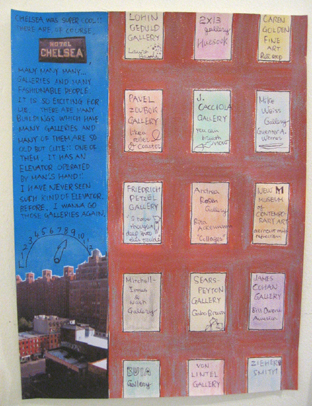 CHELSEA WAS SUPER COOL!
MORE ART OF COURSE
HOTEL
CHELSEA
MANY MANY MANY...
GALLERIES AND MANY
FASHIONABLE PEOPLE.
IT IS SO EXCITING FOR
US. THERE ARE MANY
BUILDINGS WHICH HAS
MANY GALLERIES AND
MANY OF THEM ARE SO
OLD BUT CUTE. ONE OF
THEM, IT HAS AN
ELEVATOR OPERATED
BY MAN'S HAND!
I HAVE NEVER SEEN
SUCH KIND OF ELEVATOR
BEFORE. I WANNA GO
THESE GALLERIES AGAIN.
3 4 5 6 7 8 9
LOHIN
GEDULD
GALLERY
2X13
gallery
CAREN
GOLDEN
FINE
ART
PAVEL
ZOUBOK
GALLERY
J.
CACCIOLA
GALLERY
Mike
Weiss
Gallery
FRIEDRICH
PETZEL
GALLERY
Andrea
Rosen
Gallery
Collages
NEW
MUSEUM
OF
CONTEMPORARY
ART
Mitchell-
Innes &
Nash
Gallery
SEARS-
PEYTON
GALLERY
JAMES
COHAN
GALLERY
Bill Owens
Gallery
VON
LINTEL
GALLERY
SMITH